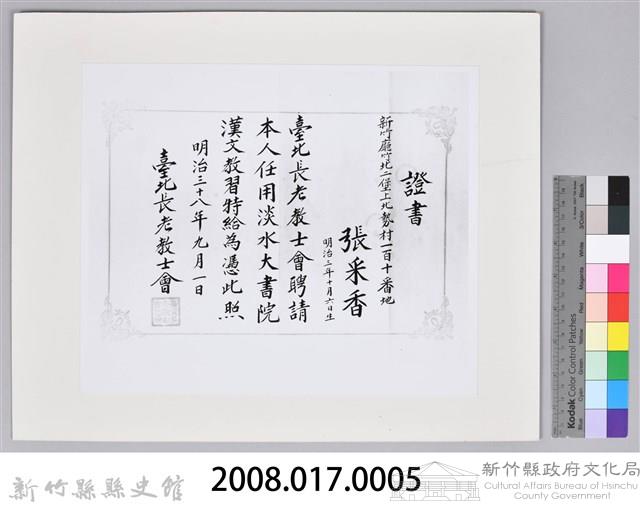 證書
新竹廳竹北二堡上北勢村一百十番地
張采香
明治三年十月六日生
臺北長老教士會聘請
本人任用淡水大書院
漢文教習特給為憑此照
明治三十八年九月一日
臺北長老教士會
Black
3/Color
White
Magenta
Red
Yellow
Green
Cyan
Blue
Kodak Color Control Patches
新竹縣縣史館
2008.017.0005
新竹縣政府文化局
Cultural Affairs Bureau of Hsinchu
County Government